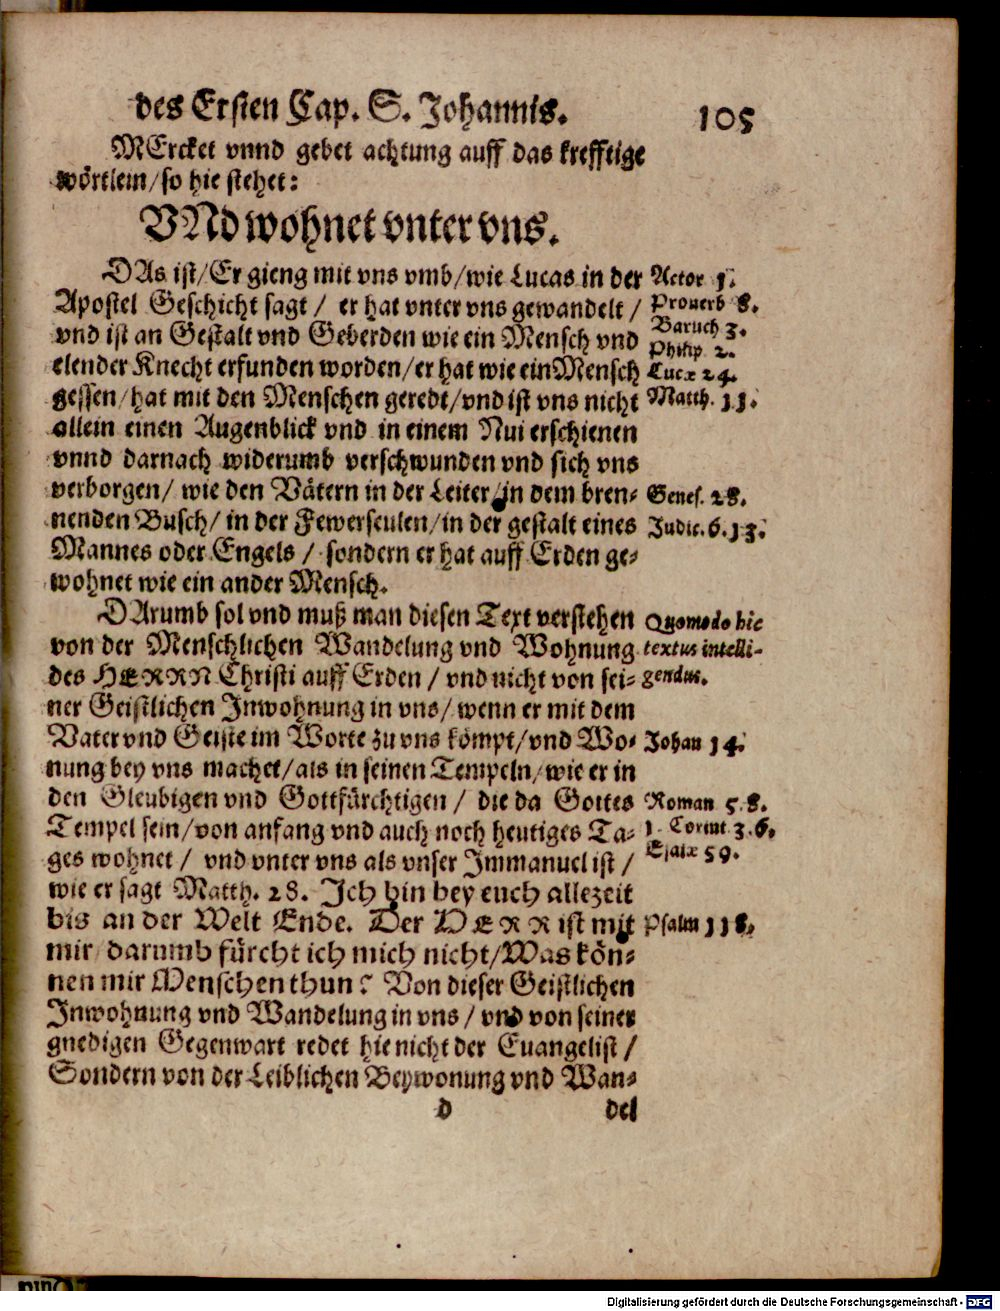 des Ersten Cap. S. Johannis. 105
MErcket vnnd gebet achtung auff das krefftige
wörtlein/so hie stehet:
VNd wohnet vnter vns.
DAs ist/Er gieng mit vns vmb/wie Lucas in der Actor 1.
Apostel Geschicht sagt / er hat vnter vns gewandelt / Prouerb 8.
vnd ist an Gestalt vnd Geberden wie ein Mensch vnd Baruch 3.
Philip 2.
elender Knecht erfunden worden/er hat wie ein Mensch Lucæ 24.
gessen/hat mit den Menschen geredt/vnd ist vns nicht Matth. 11.
allein einen Augenblick vnd in einem Nui erschienen
vnnd darnach widerumb verschwunden vnd sich vns
verborgen/ wie den Vätern in der Leiter/in dem bren- Genes. 28.
nenden Busch/ in der Fewerseulen/in der gestalt eines Judic. 6.13.
Mannes oder Engels / sondern er hat auff Erden ge-
wohnet wie ein ander Mensch.
DArumb sol vnd muß man diesen Text verstehen Quomodo hic
von der Menschlichen Wandelung vnd Wohnung textus intelli-
des HERRN Christi auff Erden / vnd nicht von sei- gendus.
ner Geistlichen Inwohnung in vns/ wenn er mit dem
Vater vnd Geiste im Worte zu vns kömpt/vnd Wo- Johan 14.
nung bey vns machet/als in seinen Tempeln/wie er in
den Gleubigen vnd Gottfürchtigen / die da Gottes Roman 5. 8.
Tempel sein/von anfang vnd auch noch heutiges Ta- 1. Corint 3. 6.
ges wohnet / vnd vnter vns als vnser Immanuel ist / Esaiæ 59.
wie er sagt Matth. 28. Ich bin bey euch allezeit
bis an der Welt Ende. Der HERR ist mit Psalm 118.
mir/darumb fürcht ich mich nicht/Was kön-
nen mir Menschen thun? Von dieser Geistlichen
Inwohnung vnd Wandelung in vns / vnd von seiner
gnedigen Gegenwart redet hie nicht der Euangelist /
Sondern von der Leiblichen Beywonung vnd Wan-
d del
Digitalisierung gefördert durch die Deutsche Forschungsgemeinschaft - DFG